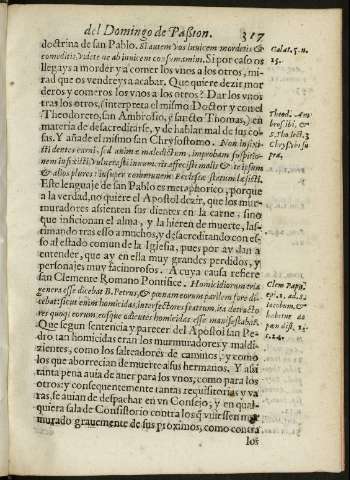 del Domingo de Paßion. 317
doctrina de san Pablo. Si autem vos inuicem mordetis &
comeditis, videte ne ab inuicem consumamini. Si por caso os
llegays a morder y a comer los vnos a los otros, mi-
rad que os vendreys a acabar. Que quiere dezir mor
deros y comeros los vnos a los otros? Dar los vnos
tras los otros, (interpreta el mismo Doctor y con el
Theodoreto, san Ambrosio, y sancto Thomas,) en
materia de desacreditarse, y de hablar mal de sus co-
sas. Y añade el mismo san Chrysostomo. Non infixi-
sti dentes carni, sed animæ maledictum, improbam suspitio-
nem infixisti, Vulnerasti
& alios plures: insuper
Este lenguaje de san Pablo es metaphorico, porque
a la verdad, no quiere el Apostol dezir, que los mur-
muradores assienten sus dientes en la carne: sino
que inficionan el alma, y la hieren de muerte, las-
timando tras esso a muchos, y desacreditando con es-
so al estado comun de la Iglesia, pues por ay dan a
entender, que ay en ella muy grandes perdidos, y
personajes muy facinorosos. A cuya causa refiere
san Clemente Romano Pontifice. Homicidiorum tria
genera esse dicebat B. Petrus, & pœnam eorum parilem fore di-
cebat: sicut enim homicidas interfectores fratrum, ita detracto
res quoq; eorum eosque odientes homicidas esse manifestabat.
Que segun sentencia y parecer del Apostol san Pe-
dro tan homicidas eran los murmuradores y maldi-
zientes, como los salteadores de caminos, y como
los que aborrecian de muerte a sus hermanos. Y assi
tanta pena auia de auer para los vnos, como para los
otros: y consequentemente tantas requisitorias y va
ras, se auian de despachar en vn Consejo, y en qual-
quiera sala de Consistorio contra los q̃ vuiessen mur
murado grauemente de sus proximos, como contra
los
Galat. 5. n.
15.
Theod. Am-
brosibi, &
s. Tho. lect. 3
Chrysosto su
pra,
Clem Papa,
epi. 1. ad. S.
Iacobum, &
habetur de
pœn. dist. 1.
c. 24.